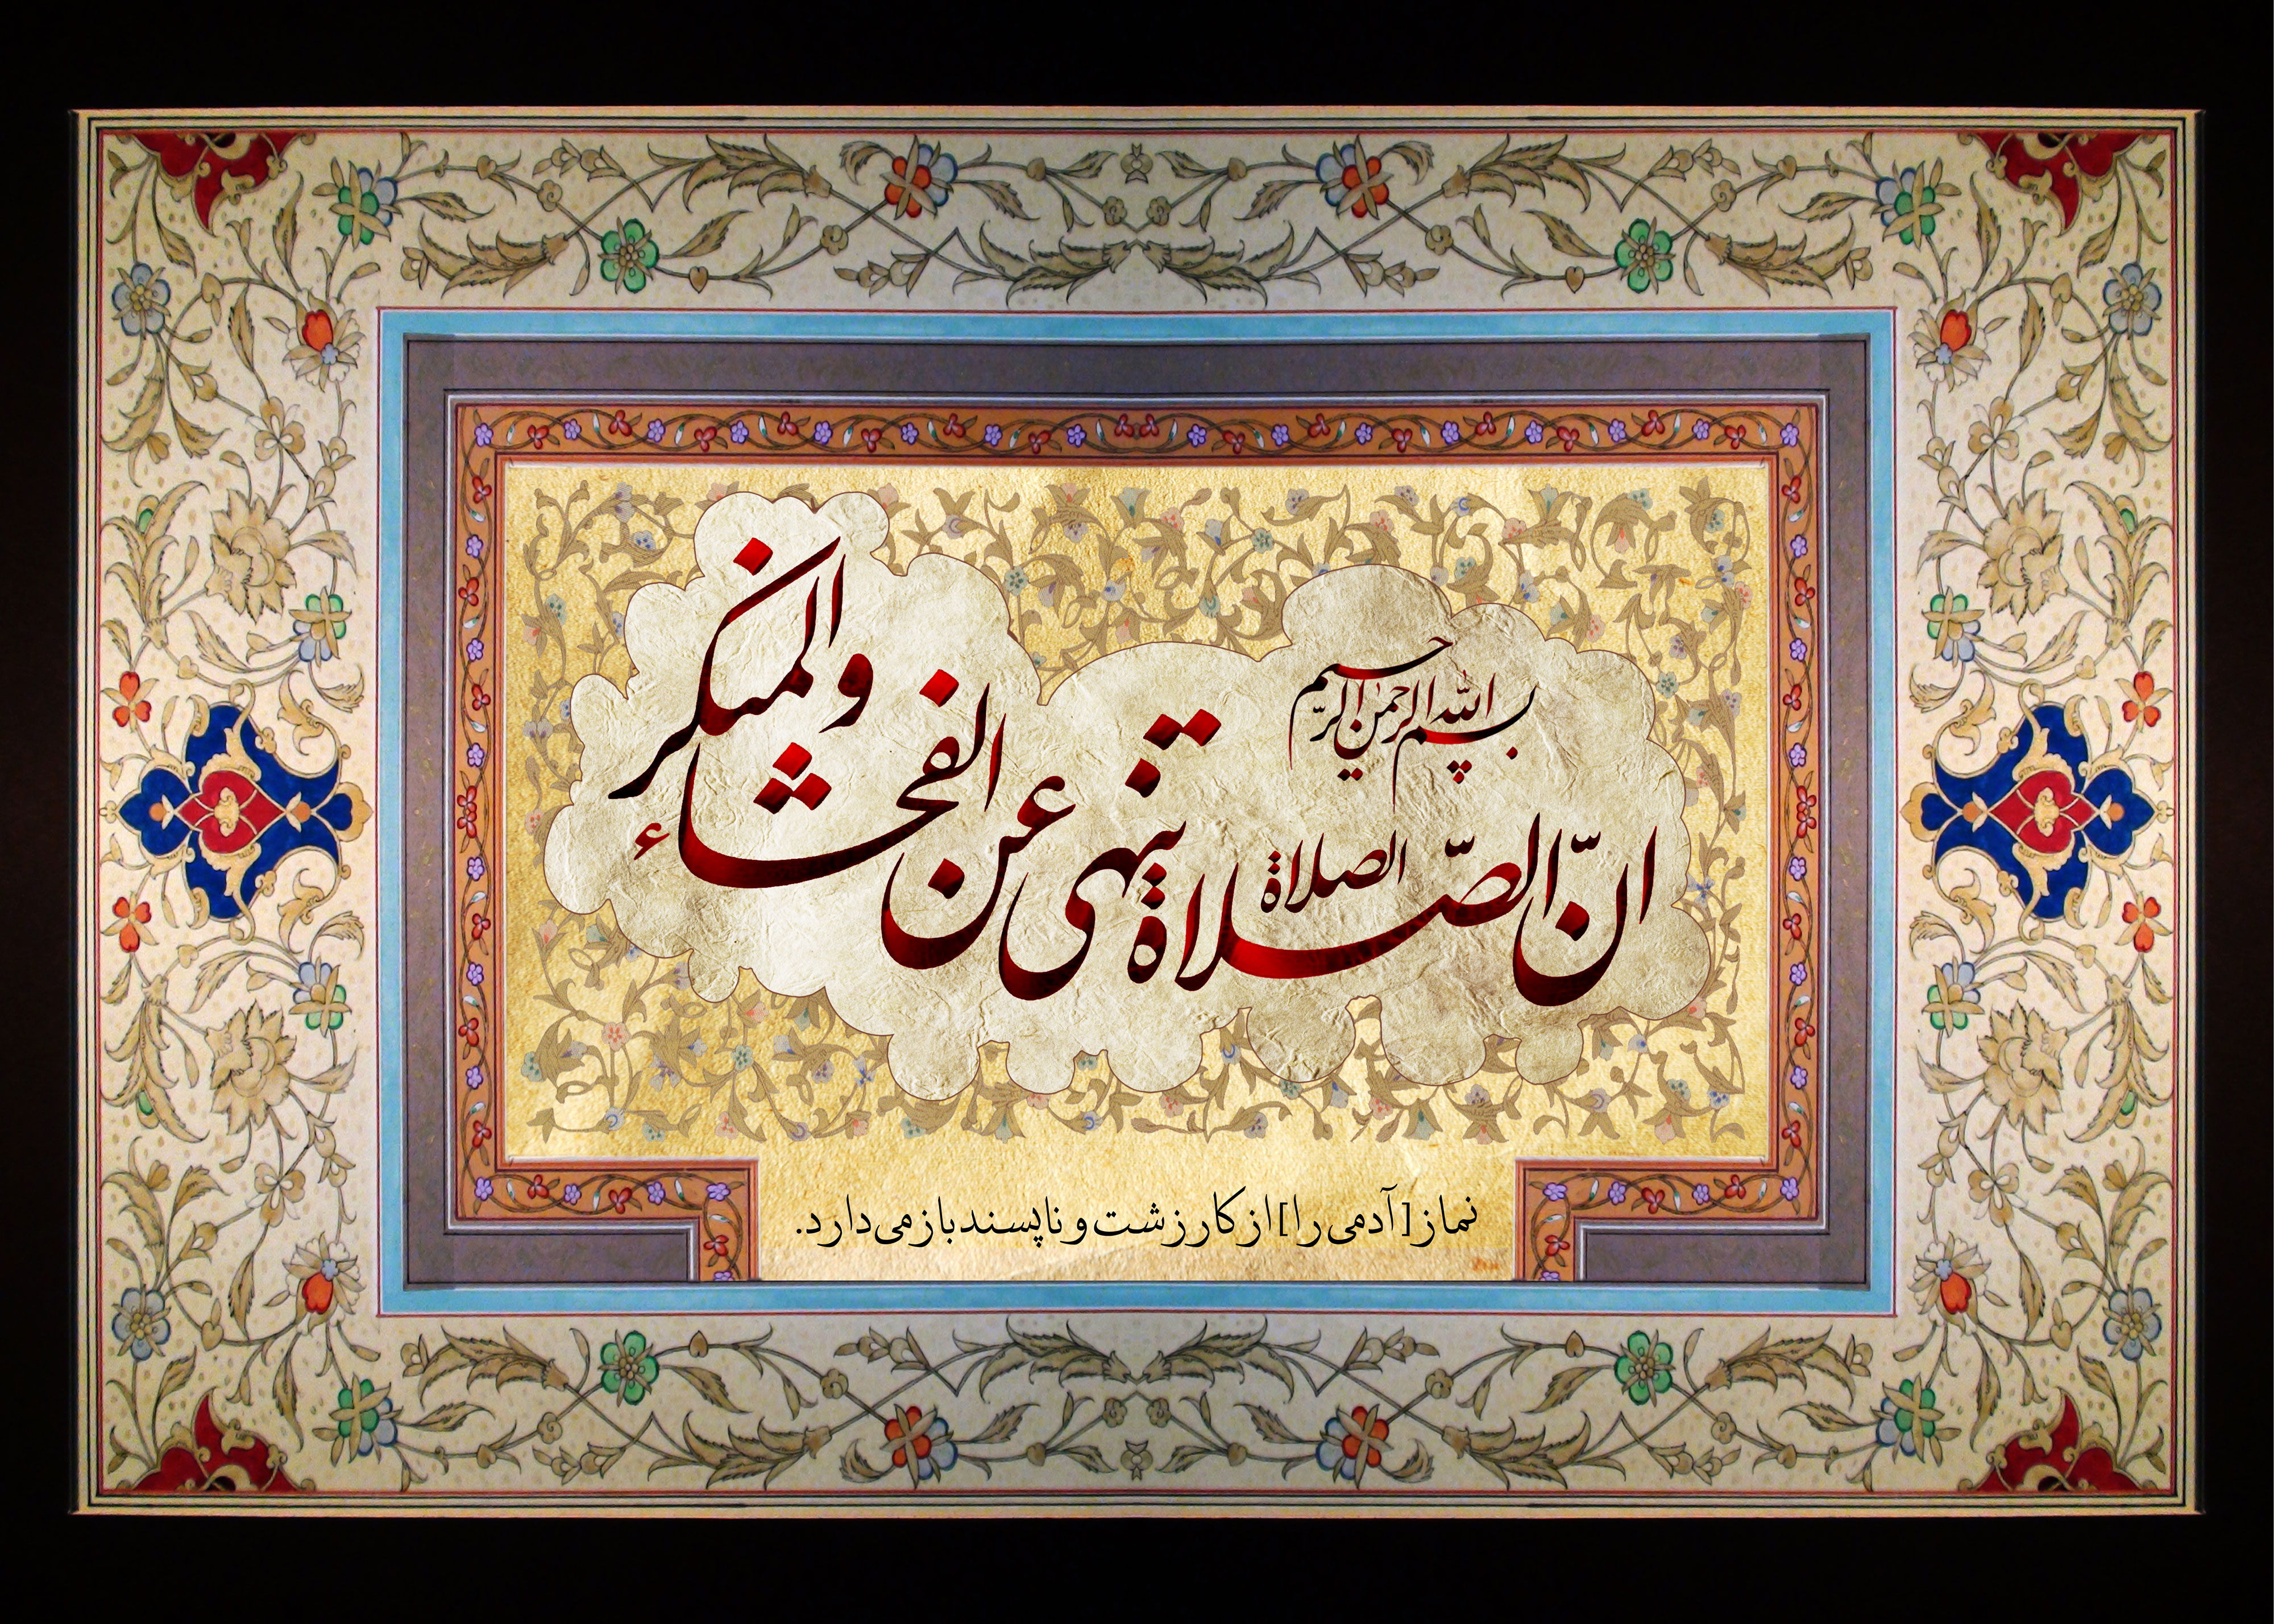 بسم الله الرحمن الرحیم
انّ الصّلاة الصلاة تنهی عن الفحشاء والمنکر
نماز [آدمی را] از کار زشت و ناپسند باز می‌دارد.